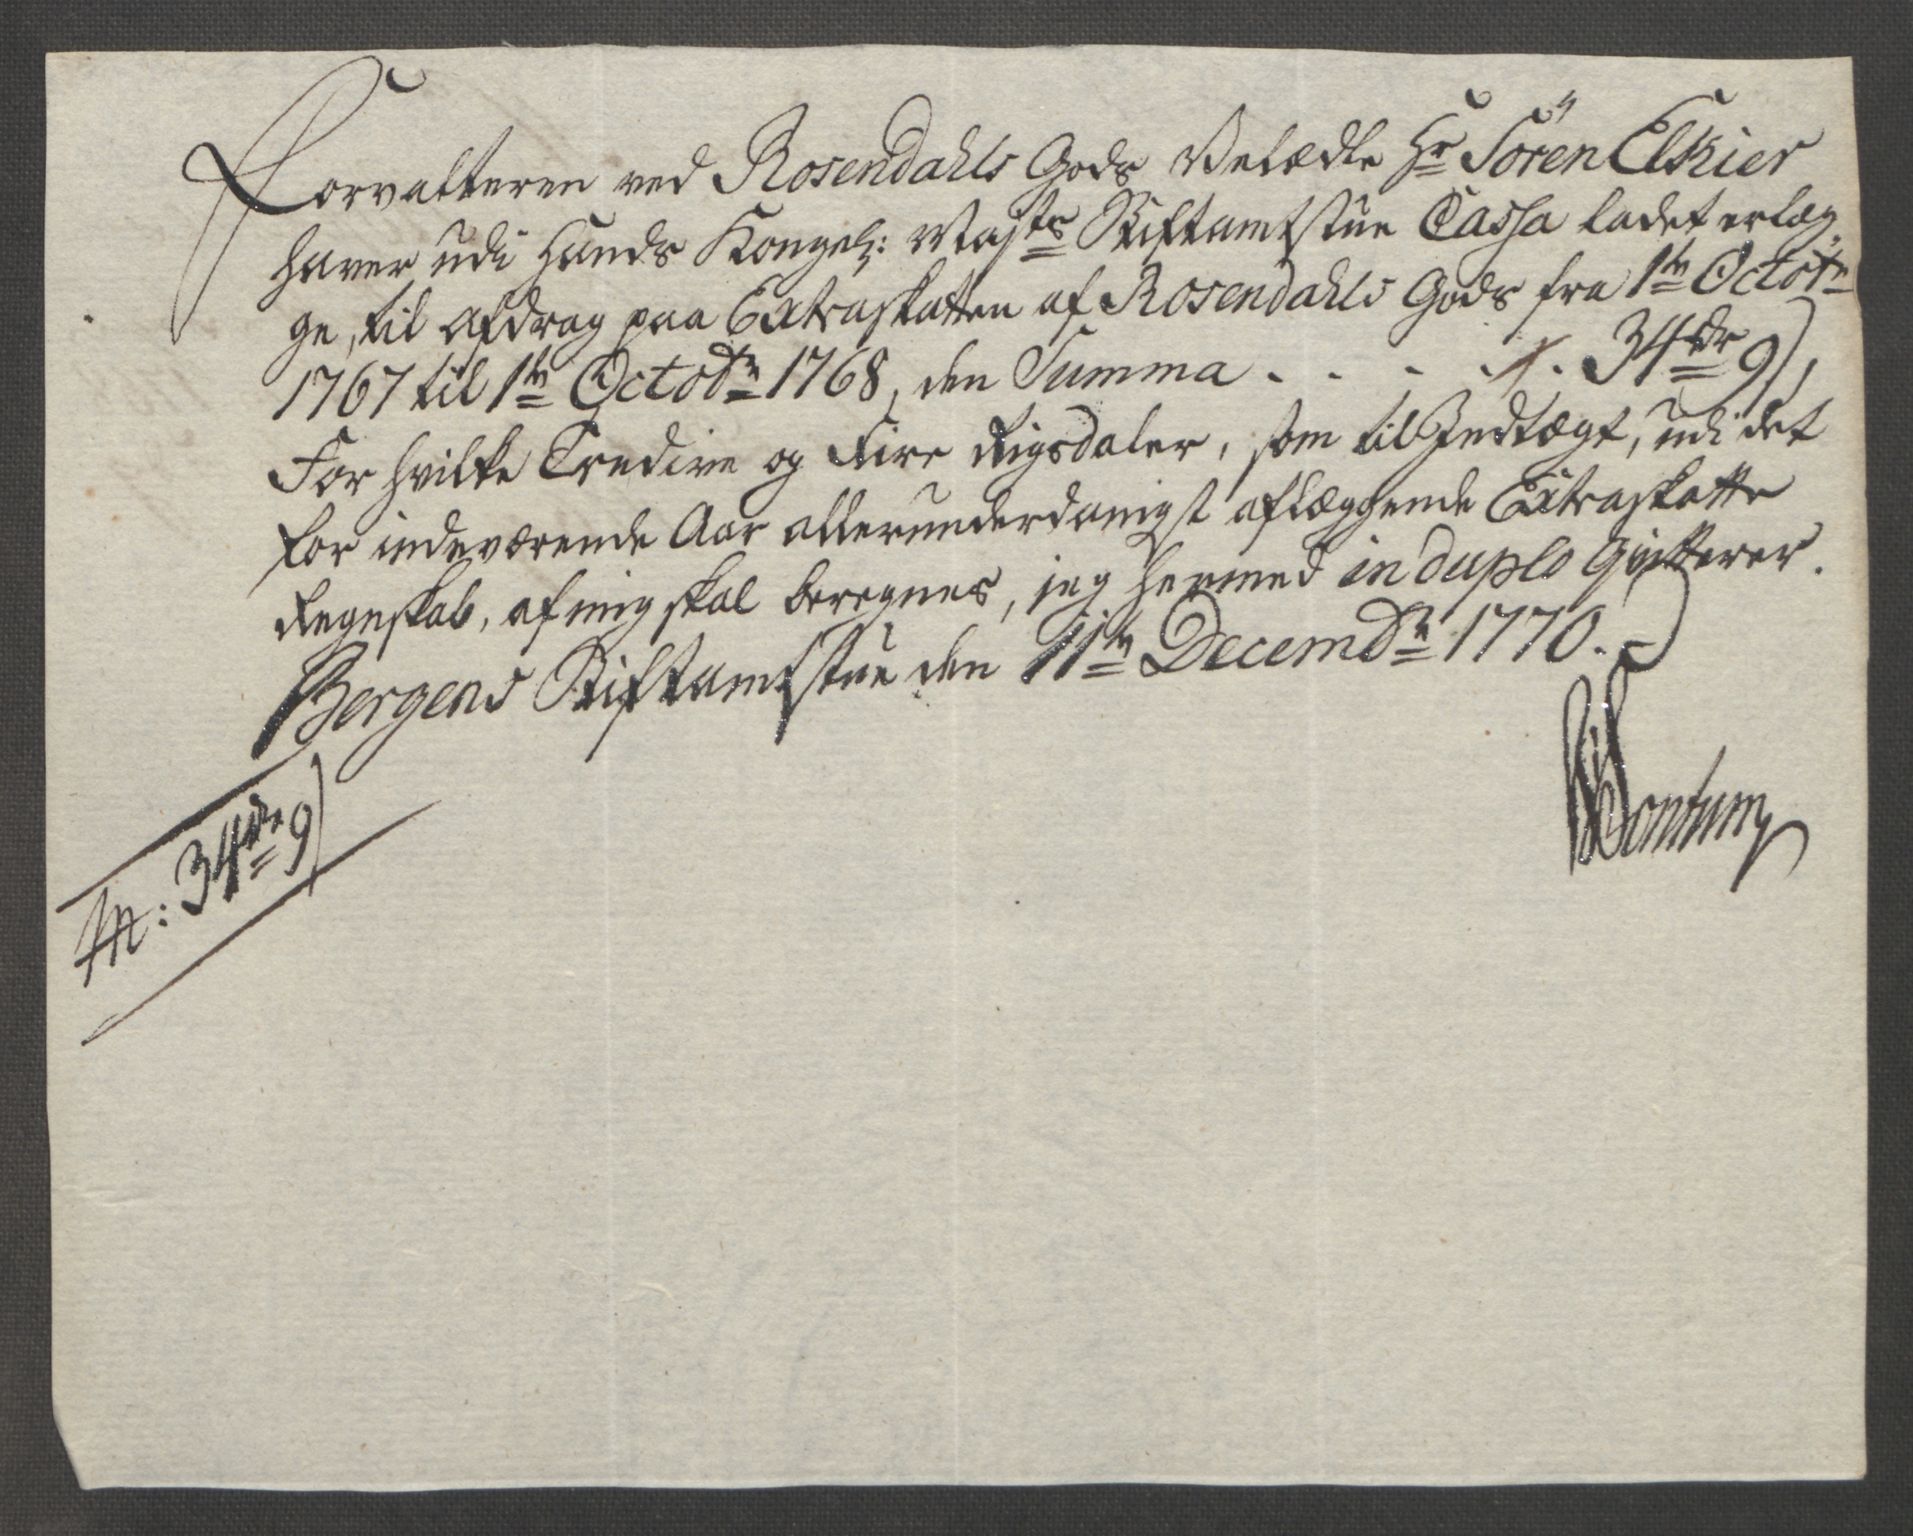 Forvalteren ved Rosendahls Gods Velædle Hr Sören Elkier
haver udi Hands Kongel: Majts Stiftamtstue Cassa ladet erlæg
ge, til Afdrag paa Extraskatten af Rosendahls Gods fra 1te Octobr
1767 til 1te Octobr 1768, den Summa - - - - 34 rdr
For hvilke Tredive og Fire Rigsdaler, som til Indtægt, udi det
for indeværende Aar allerunderdanigst aflæggende Extraskatte
Regnskab, af mig skal beregnes, jeg hermed in duplo qvitterer.
Bergens Stiftamtstue den 11te Decembr 1770.
Fontum
34 rdr